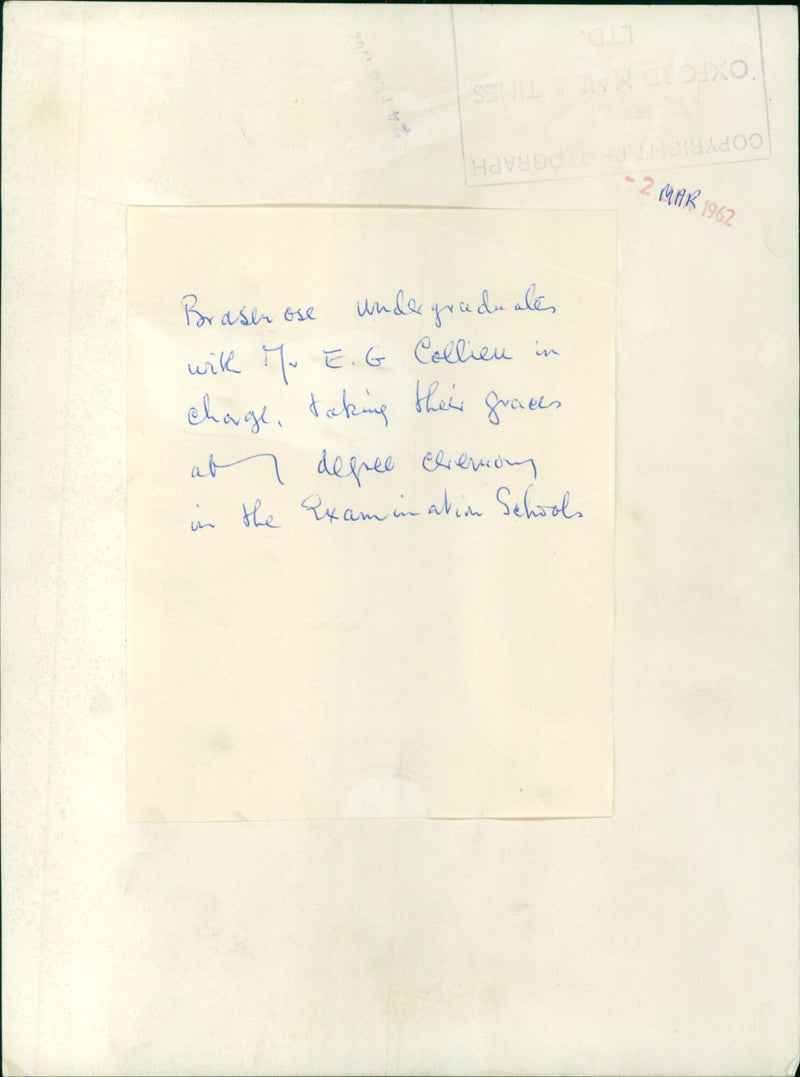 COPYRIGHT PHOTOGRAPH
OXFORD MAIL & TIMES
LTD.
- 2 MAR 1962
Brasenose undergraduates
with Mr E. G Collieu in
charge, taking their graces
at degree ceremony
in the Examination Schools